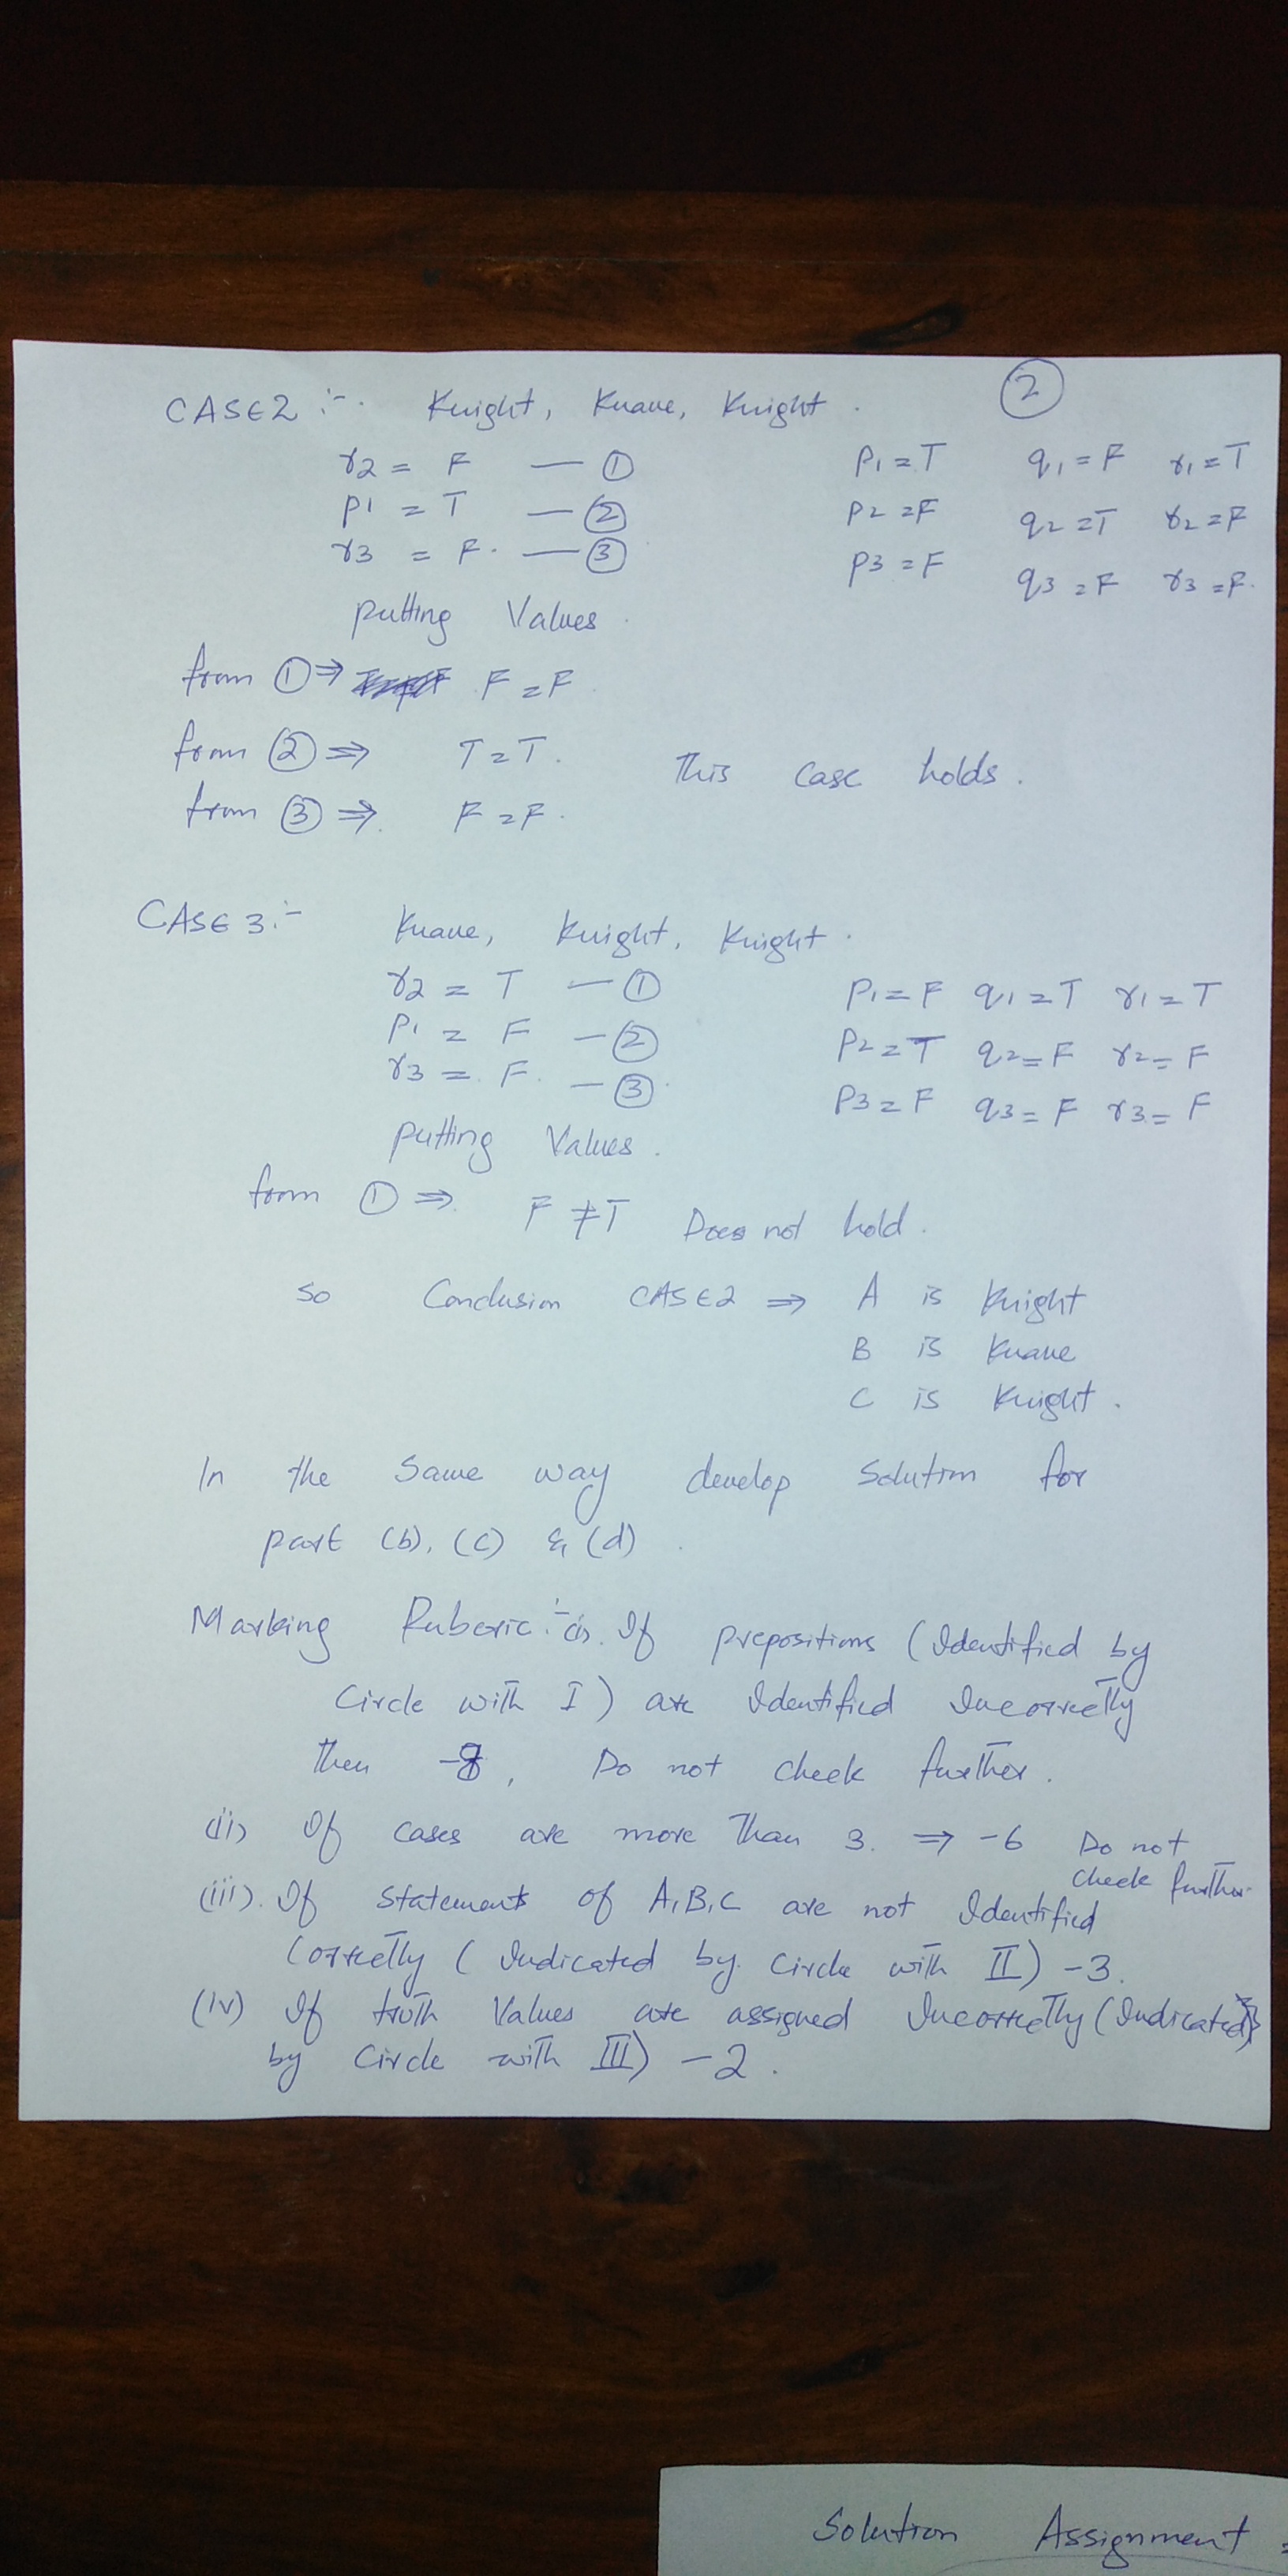 ②
CASE2 :- Knight, Knave, Knight.
r2 = F — ① p1 = T q1 = F r1 = T
p1 = T — ② p2 = F q2 = T r2 = F
r3 = F. — ③ p3 = F q3 = F r3 = F.
putting Values.
from ① ⇒ F = F
from ② ⇒ T = T. This case holds.
from ③ ⇒ F = F.
CASE 3:- Knave, Knight, Knight.
r2 = T — ① p1 = F q1 = T r1 = T
p1 = F — ② p2 = T q2 = F r2 = F
r3 = F. — ③ p3 = F q3 = F r3 = F
putting Values.
from ① ⇒ F ≠ T Does not hold.
so Conclusion CASE2 ⇒ A is Knight
B is Knave
C is Knight.
In the same way develop solution for
part (b), (c) & (d).
Marking Ruberic:- (i). If prepositions (Identified by
Circle with I) are Identified Incorrectly
then -8, Do not check further.
(ii) If cases are more than 3. ⇒ -6 Do not
check further.
(iii). If statements of A,B,C are not Identified
Correctly (Indicated by Circle with II) -3.
(iv) If truth Values are assigned Incorrectly (Indicated
by Circle with III) -2.
Solution Assignment